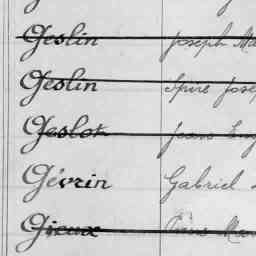 Geslin Joseph Ma
Geslin Spire Jose
Geslot Jean Eug
Gévrin Gabriel
Gieux Marc